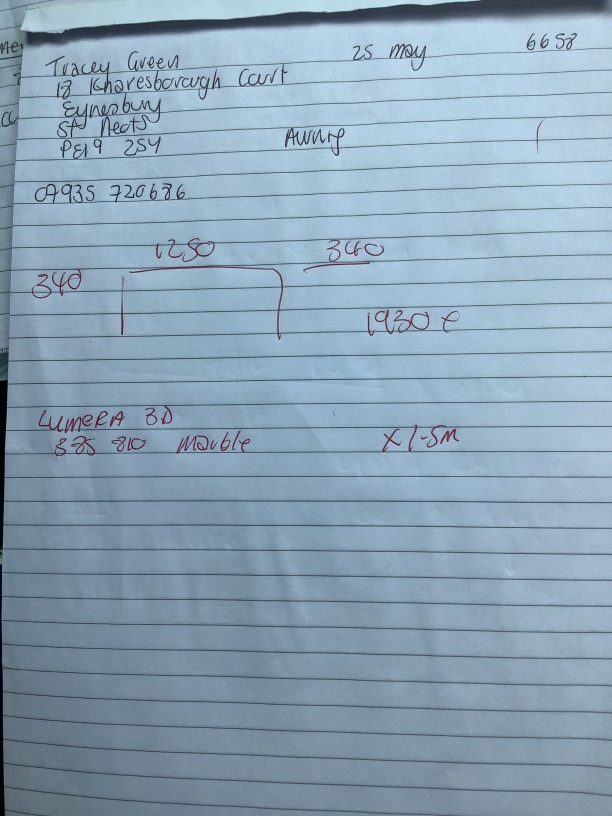 Tracey Green 25 may 6658
18 Knaresborough Court
Eynesbury
St Neots
PE19 2SY
Awning
07935 720686
1250 340
340
1930 €
LUMERA 3D
335 810 Marble X 1.5M